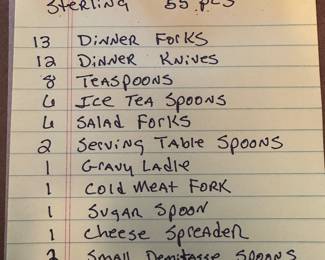 Sterling 55 pcs
13 Dinner Forks
12 Dinner Knives
8 Teaspoons
6 Ice Tea Spoons
6 Salad Forks
2 Serving Table Spoons
1 Gravy Ladle
1 Cold Meat Fork
1 Sugar Spoon
1 Cheese Spreader
Small Demitasse Spoons